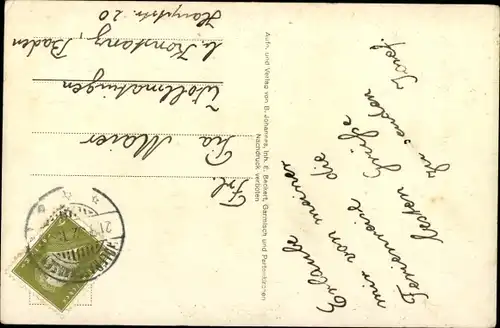 Erlaube
mir von meiner
Ferienreise die
besten Grüße
zu senden
Josef.
Aufn. und Verlag von B. Johannes, Inh. E. Beckert, Garmisch und Partenkirchen
Nachdruck verboten
Frl.
Pia Maier
Wollmatingen
b. Konstanz, Baden
Hauptstr. 20